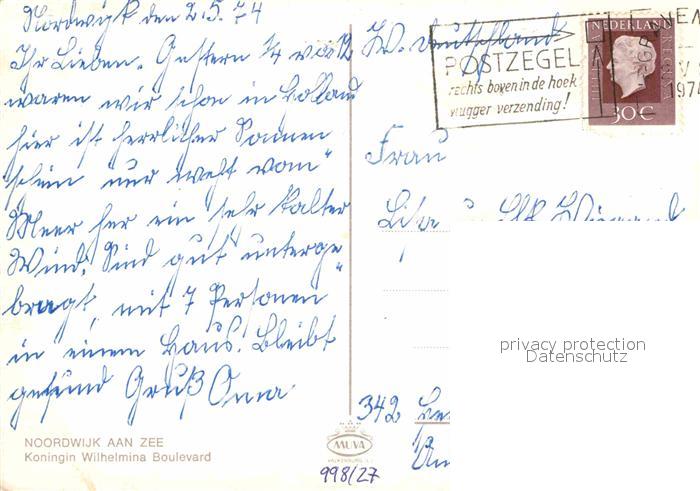 Nordwyk den 2.5.74
Ihr Lieben. Gestern 1/4 vor 12
waren wir schon in Holland
hier ist herrlicher Sonnen
schein nur weht vom
Meer her ein sehr kalter
Wind. Sind gut unterge
bragt, mit 7 Personen
in einem Haus. Bleibt
gesund Gruß Oma
NOORDWIJK AAN ZEE
Koningin Wilhelmina Boulevard
W. Deutschland
POSTZEGEL
rechts boven in de hoek
vlugger verzending!
NEDERLAND
30 C
Frau
342
MUVA
998/27
privacy protection
Datenschutz